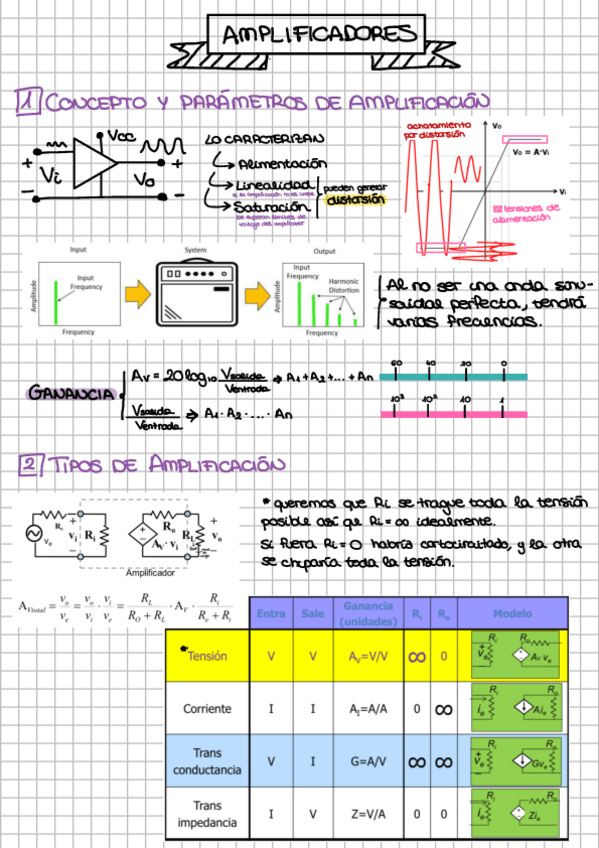 AMPLIFICADORES
1 CONCEPTO Y PARÁMETROS DE AMPLIFICACIÓN
+ Vcc +
Vi Vo
- -
LO CARACTERIZAN
→ Alimentación
→ Linealidad
→ Saturación
se superan límites de
voltaje del amplificador
pueden generar
distorsión
achatamiento
por distorsión
Vo
Vo = A·Vi
Vi
tensiones de
alimentación
Input System Output
Amplitude
Input
Frequency
Frequency
Amplitude
Input
Frequency
Harmonic
Distortion
Frequency
Al no ser una onda sinu-
soidal perfecta, tendrá
varias frecuencias.
GANANCIA
Av = 20 log10 Vsalida / Ventrada ⇒ A1+A2+...+An
Vsalida / Ventrada ⇒ A1·A2·...·An
60 40 20 0
10³ 10² 10 1
2 TIPOS DE AMPLIFICACIÓN
Ve Re + vi - Ri + - Av·vi Ro RL + vo -
Amplificador
* queremos que Ri se trague toda la tensión
posible así que Ri = ∞ idealmente.
Si fuera Ri = 0 habría cortocircuitado, y la otra
se chuparía toda la tensión.
AVtotal = vo/ve = vo/vi · vi/ve = RL/(RO + RL) · AV · Ri/(Re + Ri)
Entra Sale Ganancia (unidades) Ri Ro Modelo
*Tensión V V Av=V/V ∞ 0 Ri Ro + ve - Av ve
Corriente I I Ai=A/A 0 ∞ Ri Ro ie Ai ie
Trans conductancia V I G=A/V ∞ ∞ Ri Ro + ve - Gve
Trans impedancia I V Z=V/A 0 0 Ri Ro ie Zie